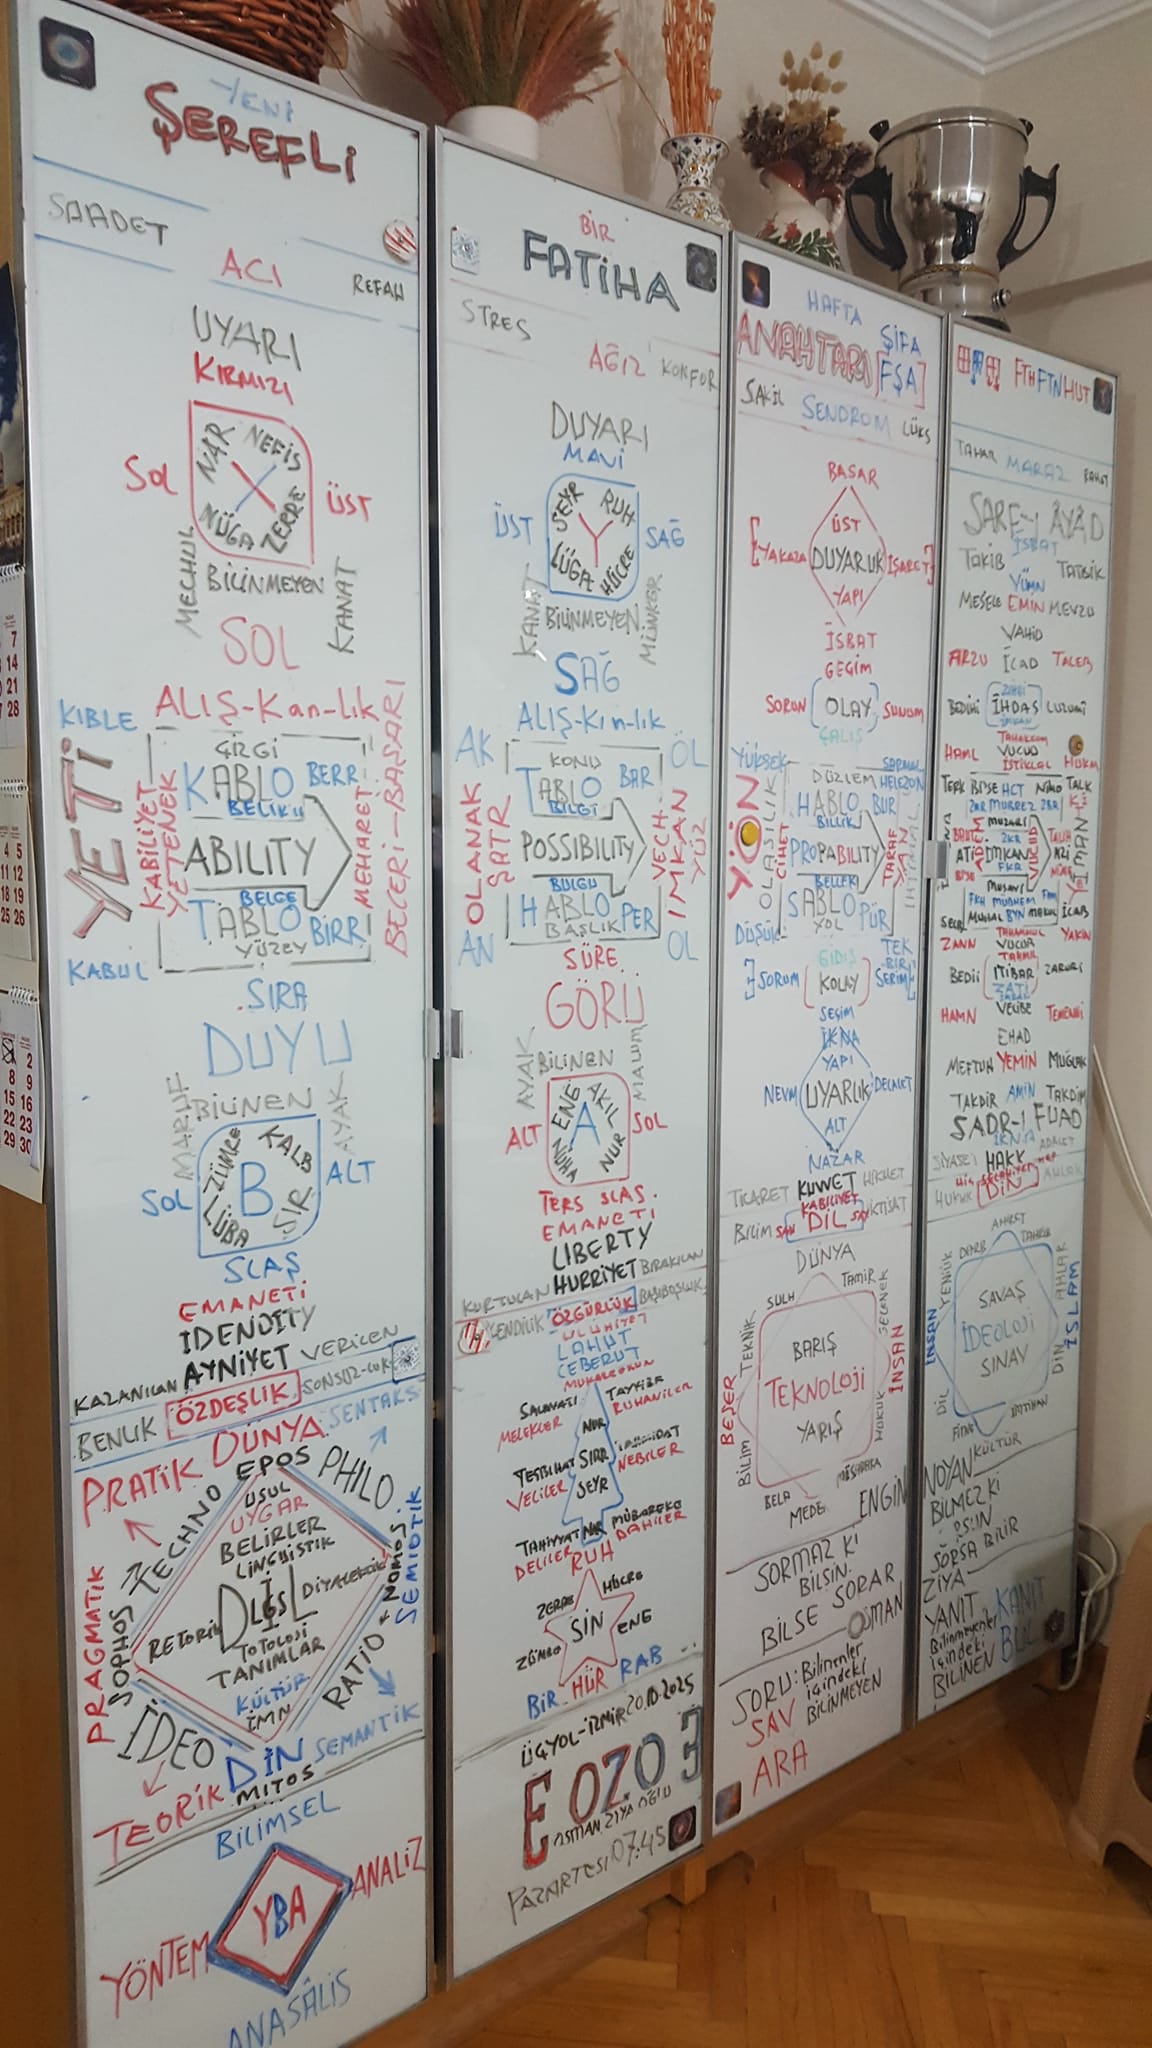 YENİ
ŞEREFLİ
SAADET
ACI
REFAH
UYARI
KIRMIZI
NAR NEFİS
SOL
ÜST
NÜGA ZERRE
MECHUL
BİLİNMEYEN
KANAT
SOL
KIBLE
ALIŞ-Kan-lık
ÇİZGİ
KABLO BERR
BELİK
YETİ
KABİLİYET
YETENEK
ABILITY
MEHARET
BECERİ-BAŞARI
BELGE
TABLO BİRR
YÜZEY
KABUL
SIRA
DUYU
MARUF
BİLİNEN
AYAK
ZÜMRE KALB
SOL
B
ALT
LÜBA SIR
SLAŞ
EMANETİ
IDENDITY
KAZANILAN AYNİYET VERİLEN
BENLİK ÖZDEŞLİK SONSUZ-LUK
PRATİK DÜNYA SENTAKS
EPOS
TECHNO
PHILO
USUL
UYGAR
BELİRLER
LİNGUİSTİK
PRAGMATİK
SOPHOS
RETORİK
DİYALEKTİK
NOMOS
SEMİOTİK
TOTOLOJİ
TANIMLAR
KÜLTÜR
İMN
RATİO
İDEO
DİN SEMANTİK
TEORİK MITOS
BİLİMSEL
YBA
ANALİZ
YÖNTEM
ANASÂLİS
BİR
FATİHA
STRES
AĞIZ KONFOR
DUYARI
MAVİ
SEYR RUH
ÜST
Y
SAĞ
LÜGA HÜCRE
KANAT
BİLİNMEYEN
MÜNKER
SAĞ
ALIŞ-Kın-lık
AK
KONU
ÖL
TABLO BAR
BİLGİ
OLANAK
ŞATR
POSSIBILITY
VECH
İMKAN
YÜZ
BULGU
HABLO PER
BAŞLIK
AN
OL
SÜRE
GÖRÜ
AYAK
BİLİNEN
MALUM
ENE AKIL
ALT
A
SOL
NÜHA NUR
TERS SLAŞ.
EMANETİ
LIBERTY
KURTULAN HÜRRİYET BIRAKILAN
KENDİLİK ÖZGÜRLÜK BAŞIBOŞLUK
ULUHİYET
LAHUT
CEBERUT
SALAVATI
MELEKLER
NUR
TAYYİBE
RUHANİLER
TESBİHAT
VELİLER
SIRR
NEBİLER
SEYR
TAHİYYAT
DELİLER
NAR
MÜBAREKE
DAHİLER
RUH
ZERRE
HÜCRE
SİN
ENE
ZÜMRE
BİR HÜR RAB
ÜÇYOL-İZMİR 20.10.2025
EOZO3
OSMAN ZİYA OĞLU
PAZARTESİ 07.45
HAFTA
ŞİFA
ANAHTARI [FŞA]
SAKİL SENDROM LÜKS
BASAR
ÜST
[YAKAZA DUYARLIK İŞARET]
YAPI
İSBAT
GEÇİM
SORUN [OLAY] SUNUM
ÇALIŞ
YÜKSEK
SARMAL
DÜZLEM HELEZON
HABLO BUR
BİLLİK
YÖN
OLASILIK
CİHET
PROPABILITY
TARAF
YAN
İHTİMAL
BELLEK
SABLO PÜR
YOL
DÜŞÜK
GİDİŞ
TEK
BİR
SORUM KOLAY SERİM
SEÇİM
İKNA
YAPI
NEVM UYARLIK DELALET
ALT
NAZAR
TİCARET KUVVET HİKMET
KABİLİYET
BİLİM SAN DİL SAY İKTİSAT
DÜNYA
SULH
TAMİR
TEKNİK
SEÇENEK
BARIŞ
BEŞER
TEKNOLOJİ
İNSAN
YARIŞ
BİLİM
HUKUK
BELA
MÜSABAKA
MEDE
ENGİN
SORMAZ Kİ
BİLSİN.
SORAR
BİLSE
OSMAN
SORU: Bilinenler
içindeki
SAV BİLİNMEYEN
ARA
FTH FTN HUT
TAHAR MARAZ RAHAT
SARE-I ÂYÂD
İSBAT
TAKİB
TATBİK
YÜMN
MESELE EMİN MEVZU
VAHİD
ARZU İCAD TALEB
BEDİHİ İHDAS LUZUMİ
TAHAKKUM
HAML VUCUD HÜKM
İSTİKLAL
TERK BİSE HCT NİHO TALK
ZANN
VUCUR
YAKİN
BEDİİ İTİBAR ZARURİ
ZATİ
HAMN VECİBE TEMENNİ
EHAD
MEFTUH YEMİN MUĞLAK
TAKDİR AMİN TAKDİM
SADR-I FUAD
İKNA
ADALET
SİYASET HAKK
HUKUK DİN AHLAK
AHİRET
DARB
TAHRİB
YENİLİK
AHLAK
SAVAŞ
İNSAN
İDEOLOJİ
İSLAM
SINAV
DİN
DİL
FİTNE
İMTİHAN
KÜLTÜR
NOYAN
BİLMEZ Kİ
SORSA BİLİR
ZİYA
YANIT KANIT
Bilinmeyenler
içindeki BUL
BİLİNEN